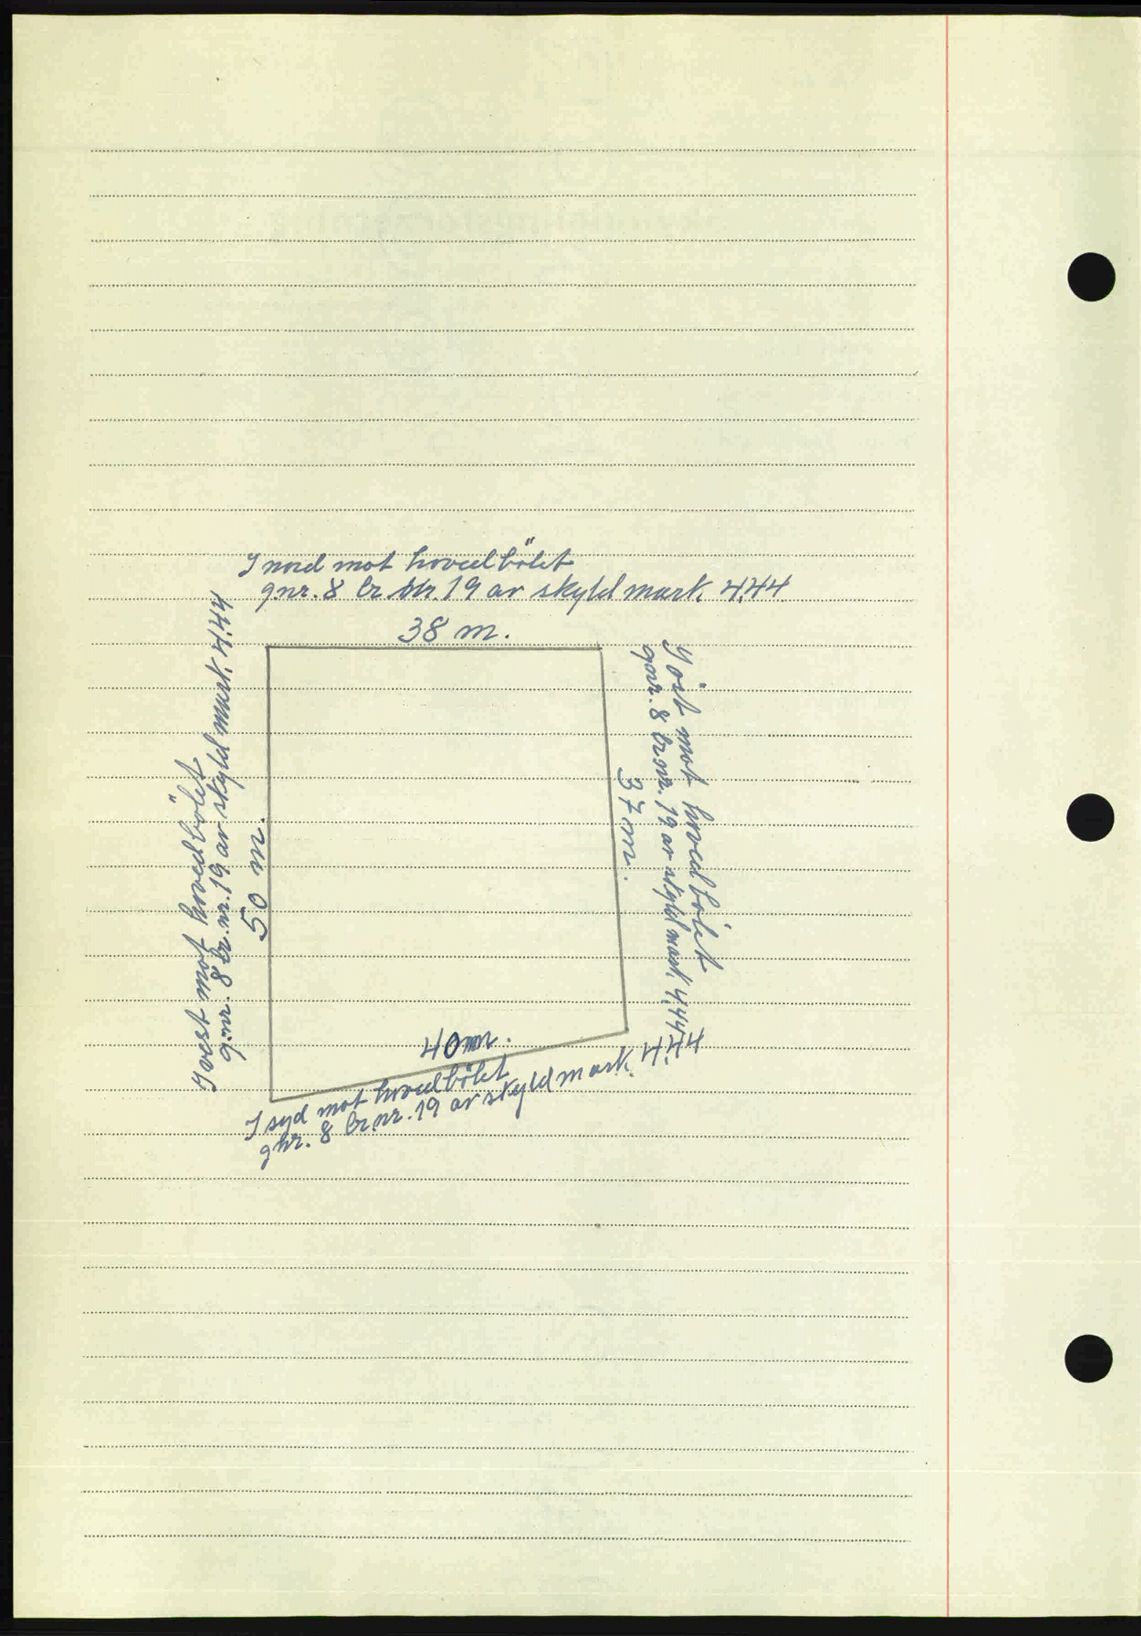 I nord mot hovedbölet
gnr. 8 br. nr. 19 av skyld mark. 4,44
38 m.
I öst mot hovedbölet
gnr. 8 br.nr. 19 av skyld mark. 4,44
37 m.
40 m.
I syd mot hovedbölet
gnr. 8 br.nr. 19 av skyld mark. 4,44
I vest mot hovedbölet
gnr. 8 br. nr. 19 av skyld mark. 4,44
50 m.